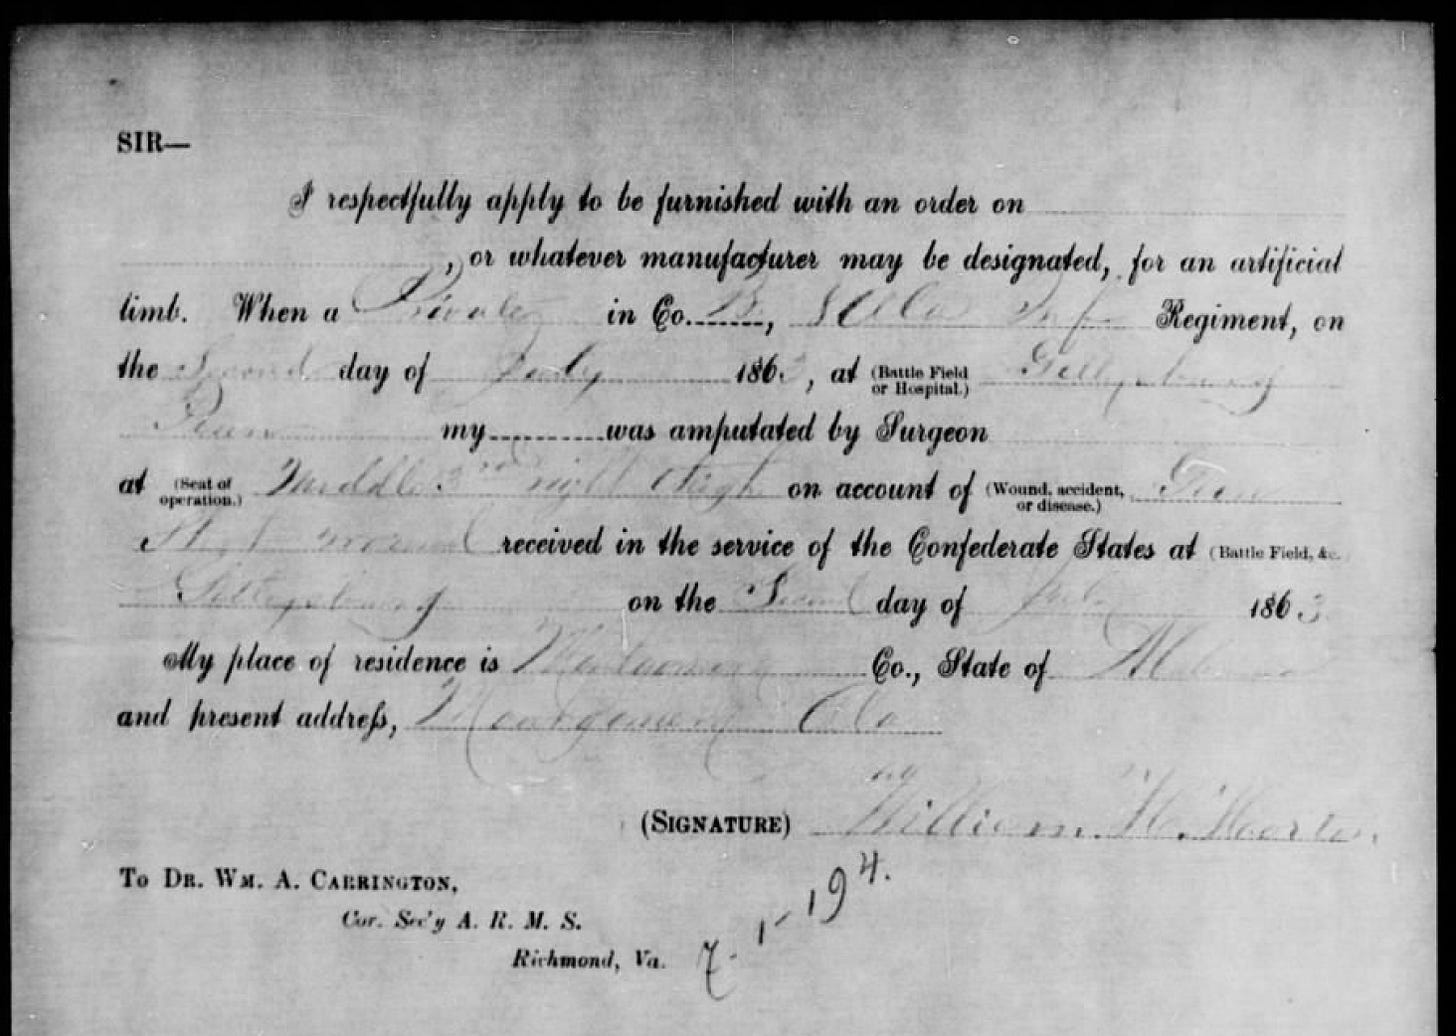 SIR—
I respectfully apply to be furnished with an order on
, or whatever manufacturer may be designated, for an artificial
limb. When a Private in Co. B, 8 Ala Inf Regiment, on
the Second day of July 1863, at (Battle Field or Hospital.) Gettysburg
Penn my was amputated by Surgeon
at (Seat of operation.) Middle 3rd right thigh on account of (Wound, accident, or disease.)
wound received in the service of the Confederate States at (Battle Field, &c.
Gettysburg on the Second day of July 1863
My place of residence is Montgomery Co., State of Alabama
and present address, Montgomery Ala
(SIGNATURE) William H.
TO DR. WM. A. CARRINGTON,
Cor. Sec'y A. R. M. S.
Richmond, Va.